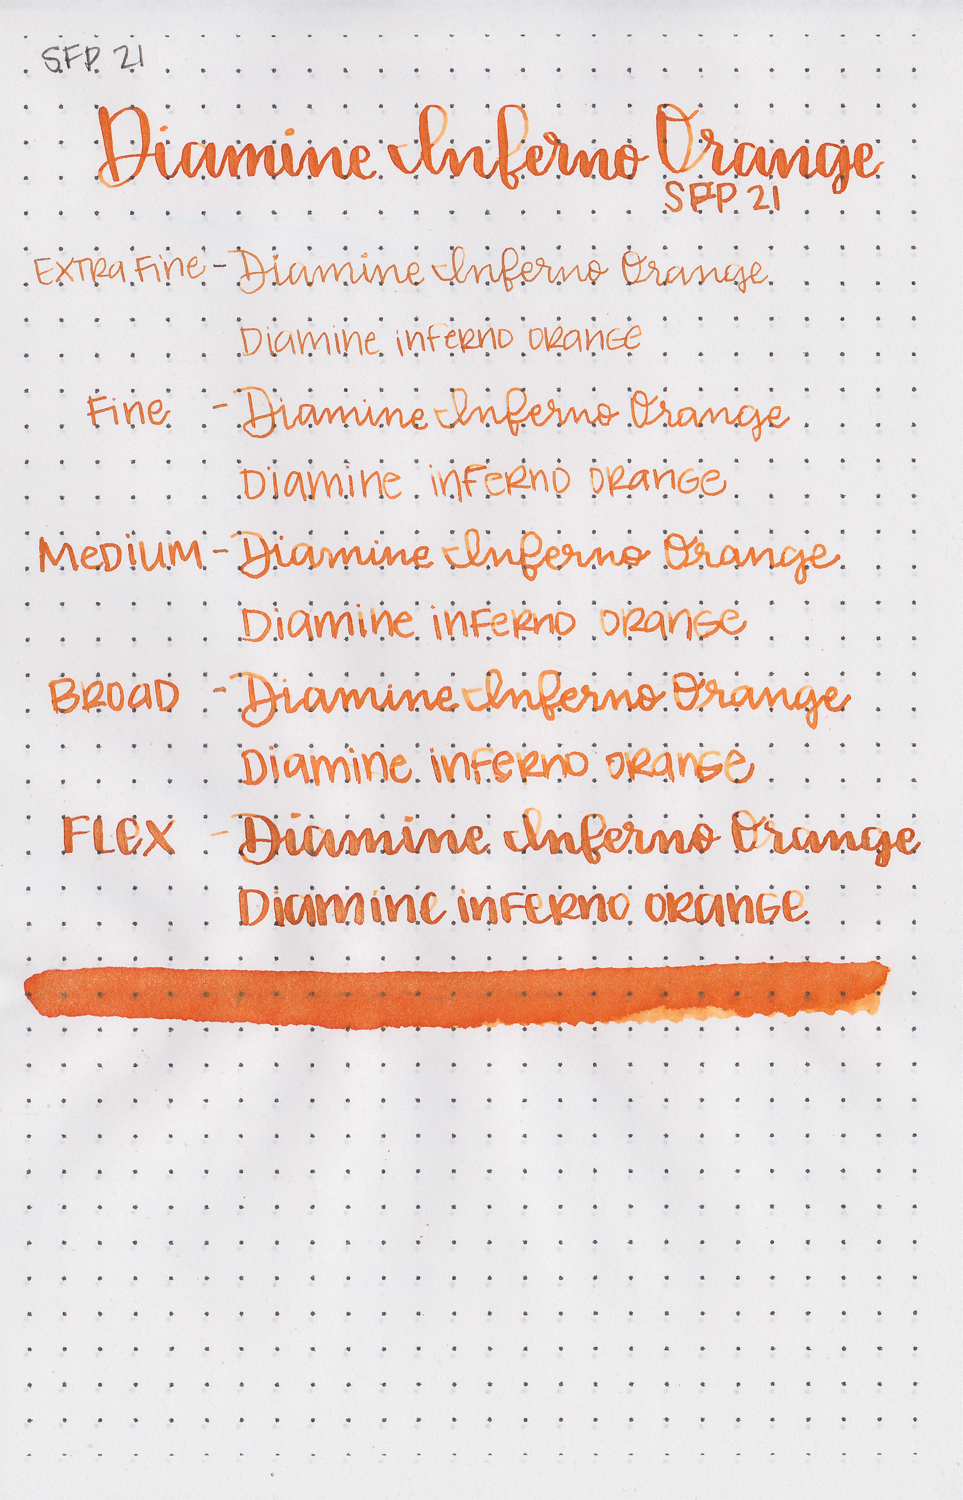 SFP 21
Diamine Inferno Orange
SFP 21
Extra Fine - Diamine Inferno Orange
Diamine inferno orange
Fine - Diamine Inferno Orange
Diamine inferno orange
Medium - Diamine Inferno Orange
Diamine inferno orange
Broad - Diamine Inferno Orange
Diamine inferno orange
Flex - Diamine Inferno Orange
Diamine inferno orange